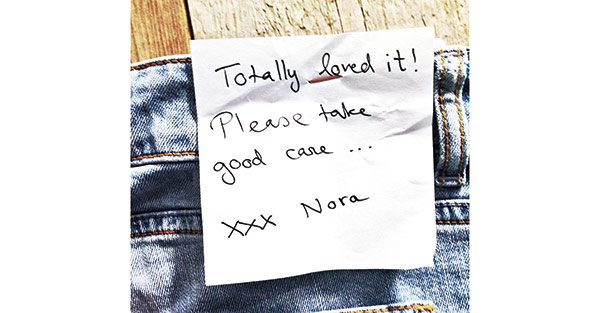 Totally loved it!
Please take
good care ...
xxx Nora